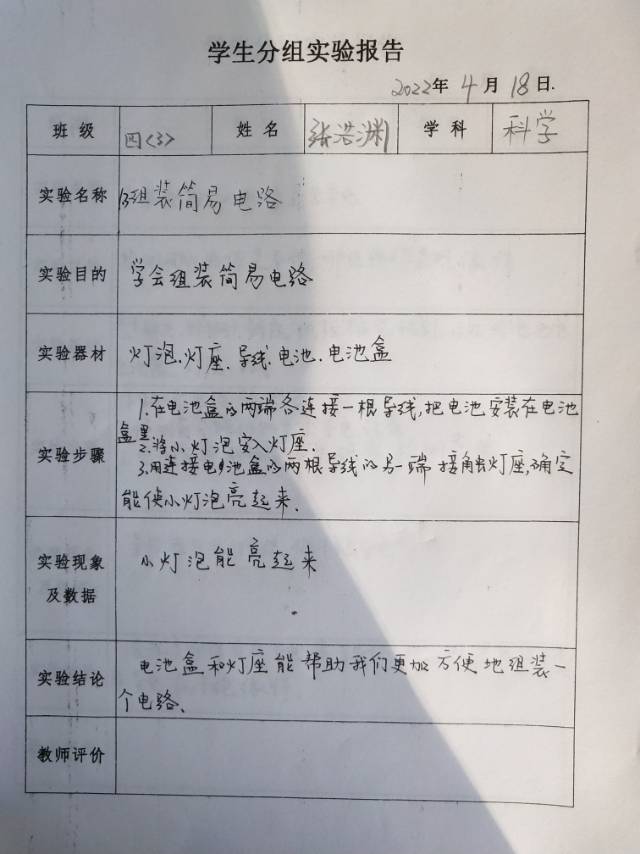 学生分组实验报告
2022年 4 月 18 日.
班 级 四<3> 姓 名 张浩渊 学 科 科学
实验名称 组装简易电路
实验目的 学会组装简易电路
实验器材 灯泡、灯座、导线、电池、电池盒
实验步骤 1.在电池盒的两端各连接一根导线,把电池安装在电池
盒里
2.将小灯泡安入灯座.
3.用连接电池盒的两根导线的另一端接触灯座,确定
能使小灯泡亮起来.
实验现象
及数据 小灯泡能亮起来
实验结论 电池盒和灯座能帮助我们更加方便地组装一
个电路、
教师评价